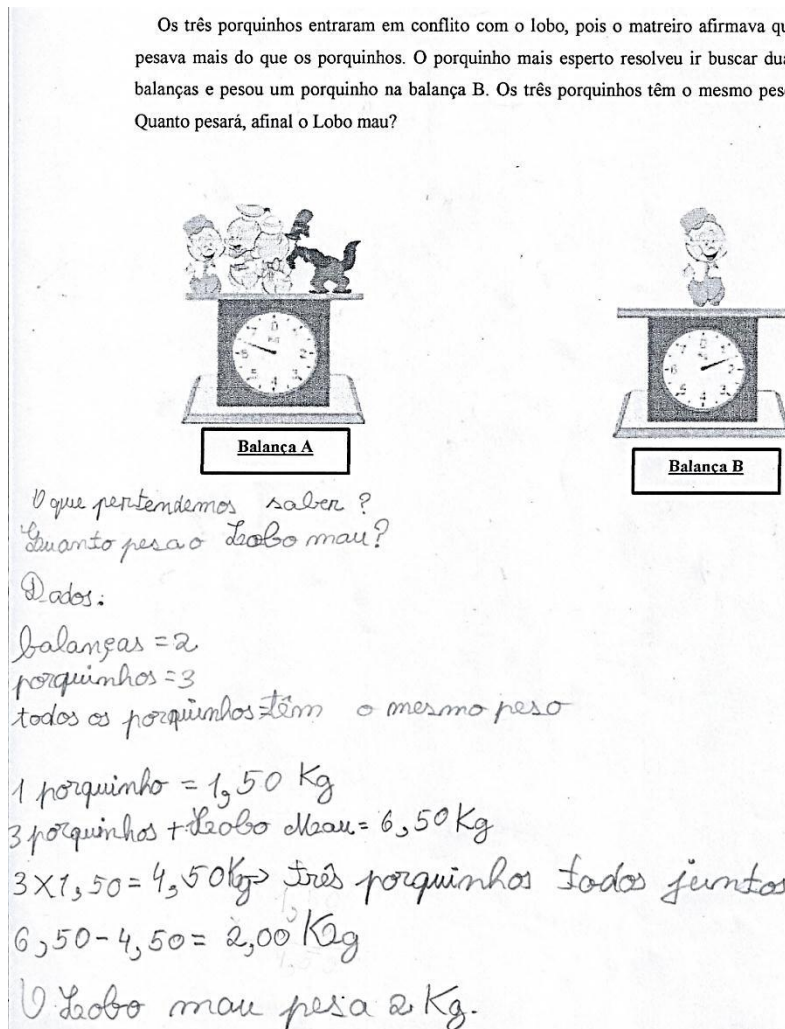 Os três porquinhos entraram em conflito com o lobo, pois o matreiro afirmava qu
pesava mais do que os porquinhos. O porquinho mais esperto resolveu ir buscar dua
balanças e pesou um porquinho na balança B. Os três porquinhos têm o mesmo pes
Quanto pesará, afinal o Lobo mau?
0
7
Kg
6
2
5
3
4
0
7
Kg
6
2
5
3
4
Balança A
Balança B
O que pertendemos saber?
Quanto pesa o Lobo mau?
Dados:
balanças = 2
porquinhos = 3
todos os porquinhos têm o mesmo peso
1 porquinho = 1,50 Kg
3 porquinhos + Lobo Mau = 6,50 Kg
3 X 1,50 = 4,50 Kg > três porquinhos todos juntos
6,50 - 4,50 = 2,00 Kg
O Lobo mau pesa 2 Kg.